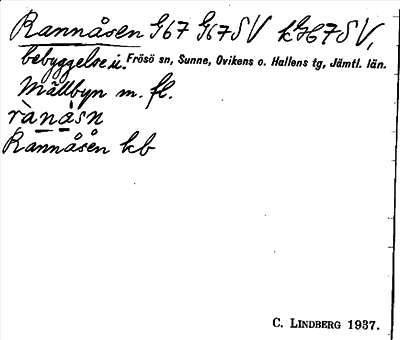 Rannåsen G67 G67SV kG67SV,
bebyggelse i. Frösö sn, Sunne, Ovikens o. Hallens tg, Jämtl. län.
Mällbyn m. fl.
rànàsn
Rannåsen kb
C. LINDBERG 1937.